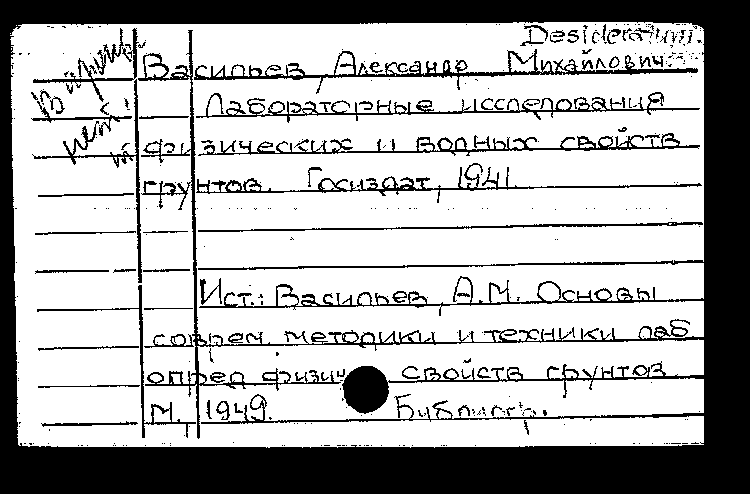 Desideratum.
Васильев, Александр Михайлович.
Лабораторные исследования
физических и водных свойств
грунтов. Госиздат, 1941
Ист.: Васильев, А.М. Основы
соврем. методики и техники лаб
опред физич свойств грунтов
М., 1949. Библиогр.
В
нет